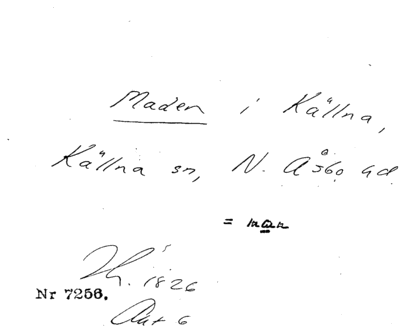 Maden i Källna,
Källna sn, N. Åsbo hd
= man
Lh. 1826
Nr 7256.
Akt 6